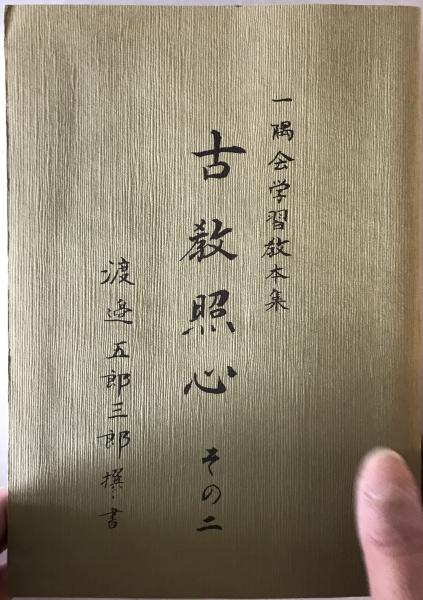 一隅会学習教本集
古教照心 その二
渡邉五郎三郎 撰・書